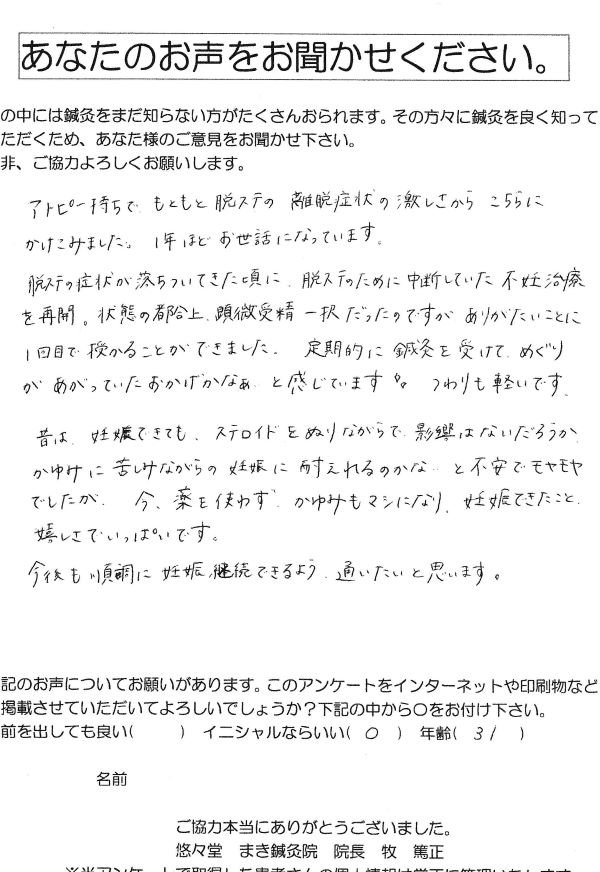 あなたのお声をお聞かせください。
の中には鍼灸をまだ知らない方がたくさんおられます。その方々に鍼灸を良く知って
ただくため、あなた様のご意見をお聞かせ下さい。
非、ご協力よろしくお願いします。
アトピー持ちで、もともと脱ステの離脱症状の激しさからこちらに
かけこみました。1年ほどお世話になっています。
脱ステの症状が落ちついてきた頃に、脱ステのために中断していた不妊治療
を再開。状態の都合上、顕微受精一択だったのですがありがたいことに
1回目で授かることができました。定期的に鍼灸を受けて、めぐり
があがっていたおかげかなぁ、と感じています。つわりも軽いです。
昔は、妊娠できても、ステロイドをぬりながらで影響はないだろうか、
かゆみに苦しみながらの妊娠に耐えれるのかな…と不安でモヤモヤ
でしたが、今、薬を使わず、かゆみもマシになり、妊娠できたこと、
嬉しさでいっぱいです。
今後も順調に妊娠継続できるよう、通いたいと思います。
記のお声についてお願いがあります。このアンケートをインターネットや印刷物など
掲載させていただいてよろしいでしょうか？下記の中から○をお付け下さい。
前を出しても良い(　　)　イニシャルならいい(○)　年齢(31)
名前
ご協力本当にありがとうございました。
悠々堂　まき鍼灸院　院長　牧　篤正
※当アンケートで取得した患者さんの個人情報は厳正に管理いたします